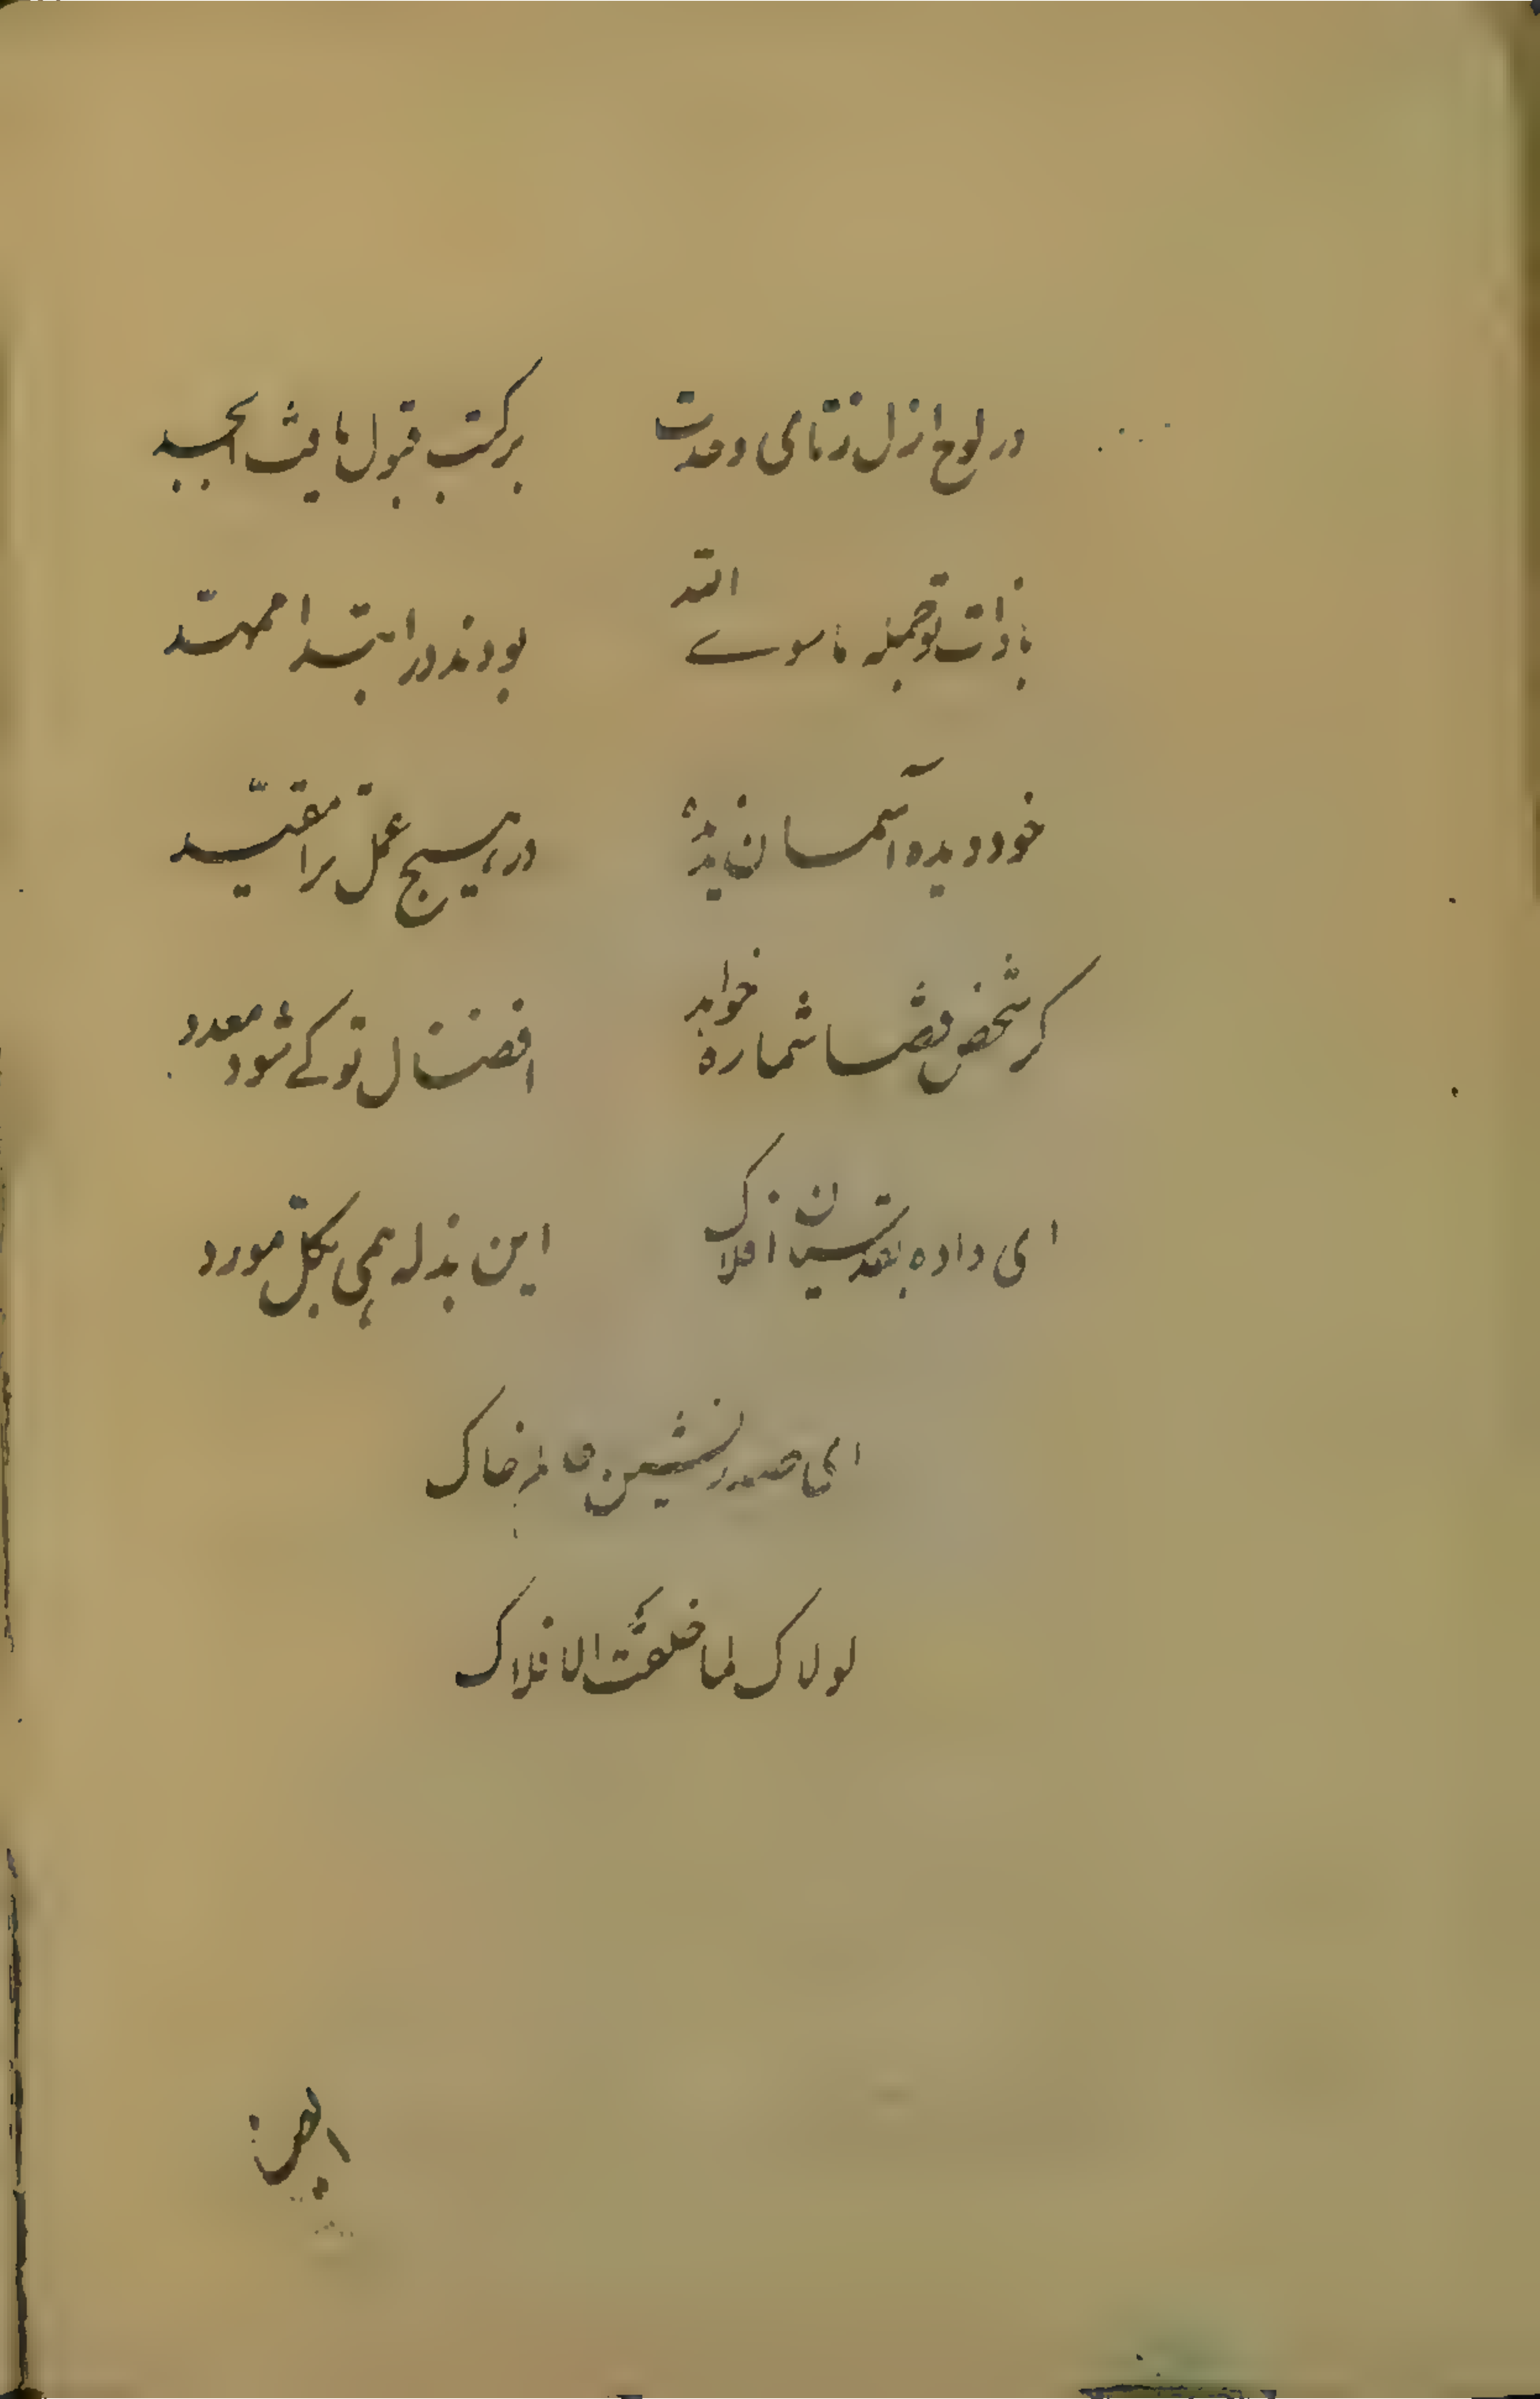 در لوح ازل ز تای وحدت برکتب قبول یافت ابجد
با ذات تو جمله ما سوے الله بودند در ابتدا ممهد
خود دیده آسمان در هیچ عمل ترا مقید
کر شخص قضا شماره خواهد افضال تو کے شود معدد
ای داده بقدسیان افلاک این بذله همی بکل مورد
ای صدر نشین عالم خاک
لولاک لما خلقت الافلاک
ایضن